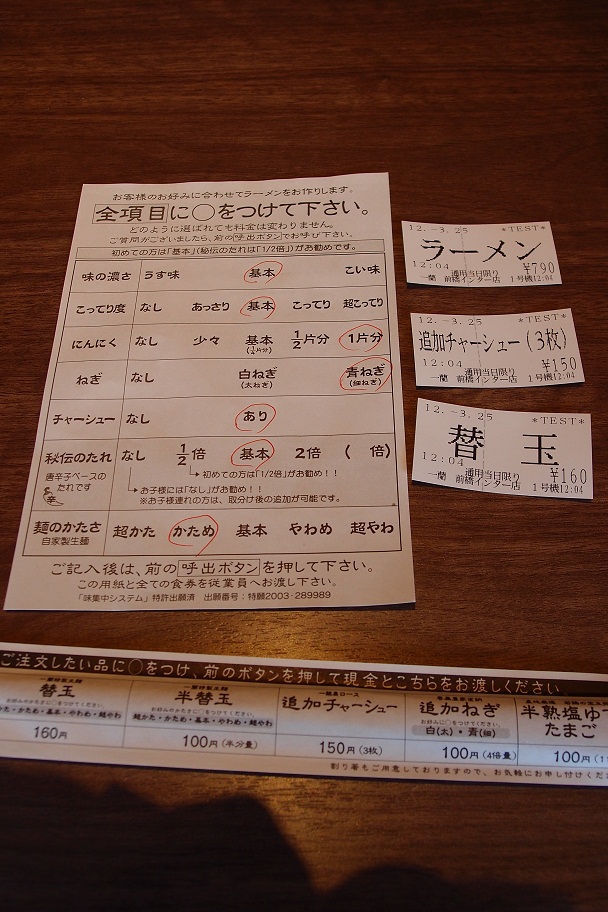 お客様のお好みに合わせてラーメンをお作りします。
全項目に○をつけて下さい。
どのように選ばれても料金は変わりません。
ご質問がございましたら、前の呼出ボタンでお呼び下さい。
初めての方は「基本」(秘伝のたれは「1/2倍」)がお勧めです。
味の濃さ うす味 基本 こい味
こってり度 なし あっさり 基本 こってり 超こってり
にんにく なし 少々 基本 1/2片分 1片分
(1/4片分)
ねぎ なし 白ねぎ 青ねぎ
(太ねぎ) (細ねぎ)
チャーシュー なし あり
秘伝のたれ なし 1/2倍 基本 2倍 ( 倍)
唐辛子ベースのたれです
初めての方は「1/2倍」がお勧め!!
お子様には「なし」がお勧め!!
※お子様連れの方は、取分け後の追加が可能です。
麺のかたさ 超かた かため 基本 やわめ 超やわ
自家製生麺
ご記入後は、前の呼出ボタンを押して下さい。
この用紙と全ての食券を従業員へお渡し下さい。
「味集中システム」特許出願済 出願番号:特願2003-289989
12.-3.25 *TEST*
ラーメン
12:04 ¥790
通用当日限り
一蘭 前橋インター店 1号機12:04
12.-3.25 *TEST*
追加チャーシュー(3枚)
12:04 ¥150
通用当日限り
一蘭 前橋インター店 1号機12:04
12.-3.25 *TEST*
替 玉
12:04 ¥160
通用当日限り
一蘭 前橋インター店 1号機12:04
ご注文したい品に○をつけ、前のボタンを押して現金とこちらをお渡しください
替玉
かた・かため・基本・やわめ・超やわ
160円
半替玉
超かた・かため・基本・やわめ・超やわ
100円(半分量)
追加チャーシュー
150円(3枚)
追加ねぎ
白(太)・青(細)
100円(4倍量)
半熟塩ゆ
たまご
100円(1
割り箸もご用意しておりますので、お気軽にお申し付けくだ